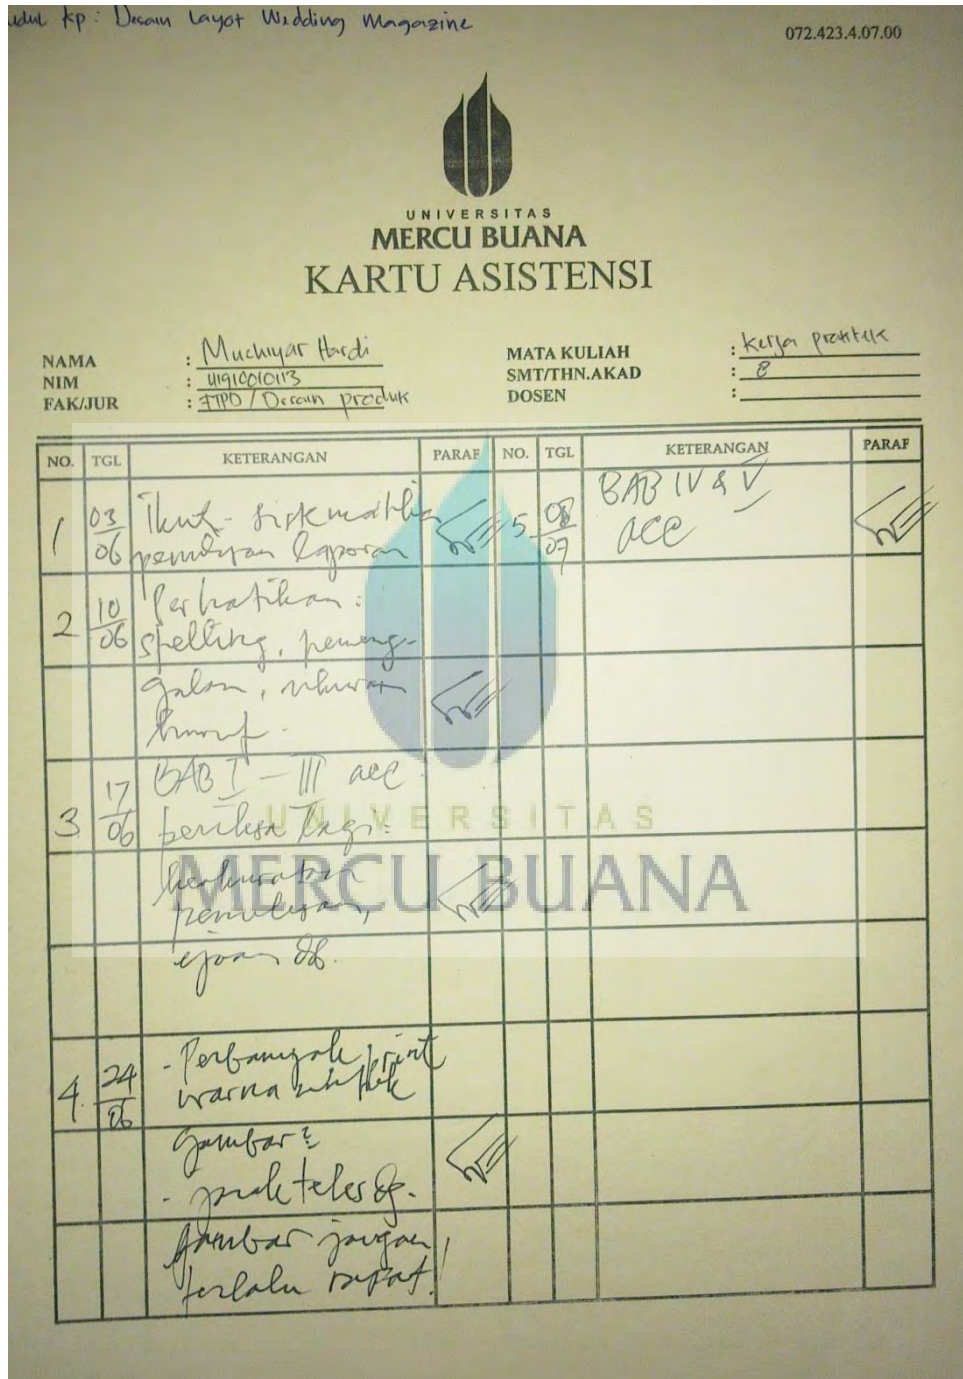 udul kp : Desain Layot Wedding Magazine
072.423.4.07.00
UNIVERSITAS
MERCU BUANA
KARTU ASISTENSI
NAMA : Muchiyar Hardi
NIM : 41910010113
FAK/JUR : FTPD / Desain produk
MATA KULIAH : Kerja praktek
SMT/THN.AKAD : 8
DOSEN :
NO. TGL KETERANGAN PARAF NO. TGL KETERANGAN PARAF
1 03/06 Ikuti sistematika
penulisan laporan
5 08/07 BAB IV & V
acc
2 10/06 Perhatikan :
spelling, pemeng-
galan, ukuran
huruf.
3 17/06 BAB I - III acc
periksa lagi:
keakuratan
penulisan,
ejaan
UNIVERSITAS
MERCU BUANA
4. 24/06 - Perbanyak print
warna
gambar
-
gambar jangan
terlalu rapat!